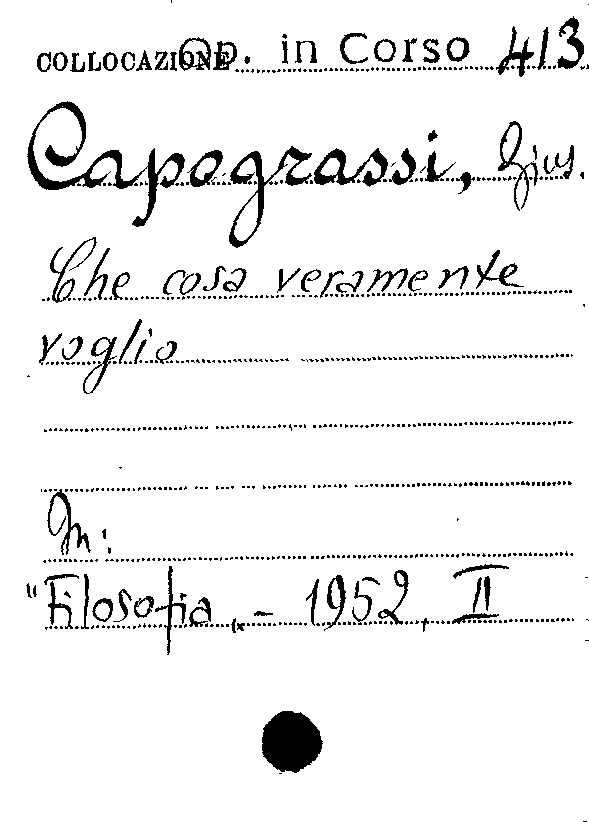 COLLOCAZIONE Op. in Corso 413
Capograssi, Gius.
Che cosa veramente
voglio
In:
"Filosofia„ - 1952, II